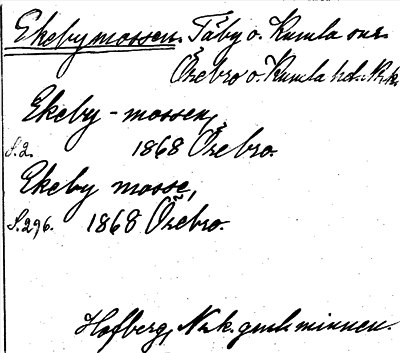 Ekebymossen. Täby o. Kumla snr.
Örebro o. Kumla hd. Nrk.
Ekeby-mossen,
S. 2. 1868 Örebro.
Ekeby mosse,
S. 296. 1868 Örebro.
Hofberg, Nrk. gamla minnen.